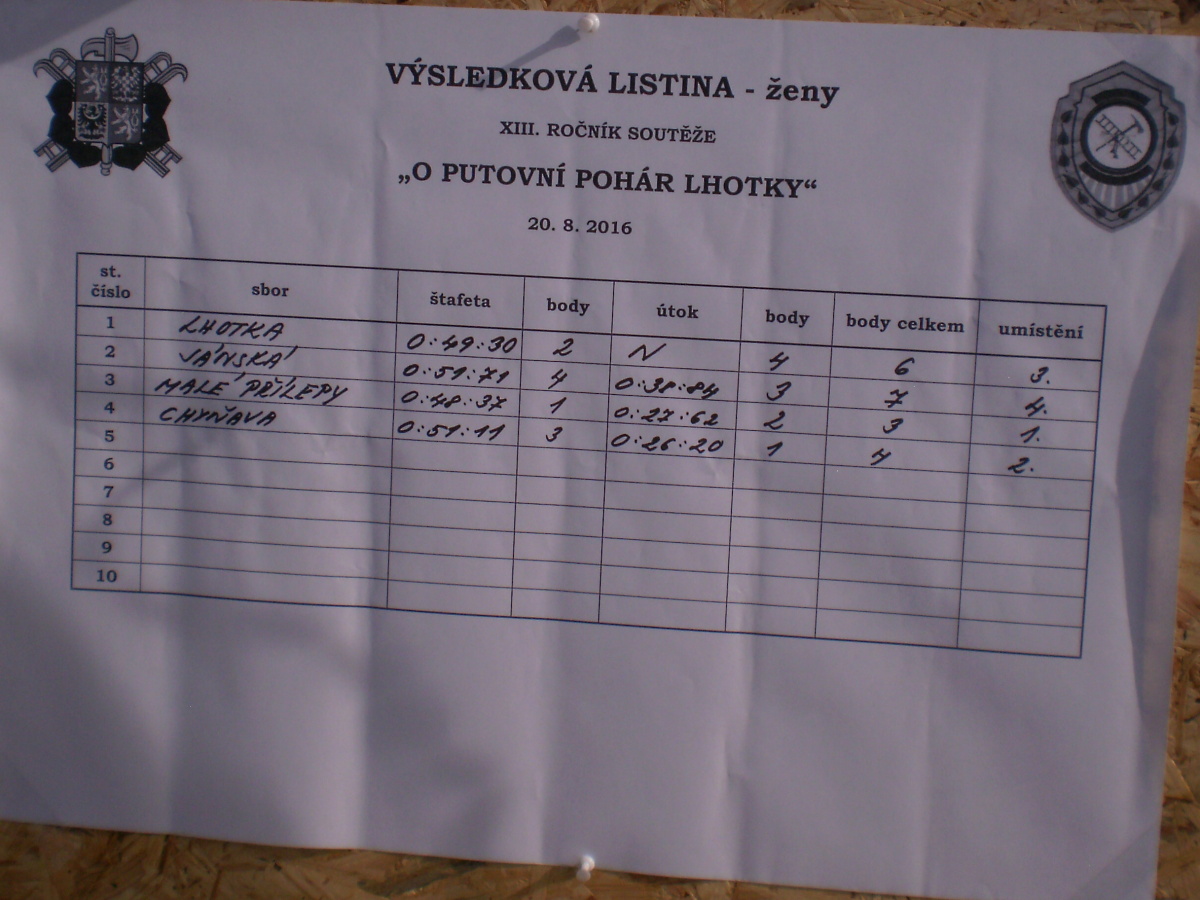 VÝSLEDKOVÁ LISTINA - ženy
XIII. ROČNÍK SOUTĚŽE
„O PUTOVNÍ POHÁR LHOTKY“
20. 8. 2016
st. číslo sbor štafeta body útok body body celkem umístění
1 LHOTKA 0:49:30 2 N 4 6 3.
2 VÁŇSKÁ 0:51:71 4 0:38:84 3 7 4.
3 MALÉ PŘÍLEPY 0:48:37 1 0:27:62 2 3 1.
4 CHYŇAVA 0:51:11 3 0:26:20 1 4 2.
5
6
7
8
9
10